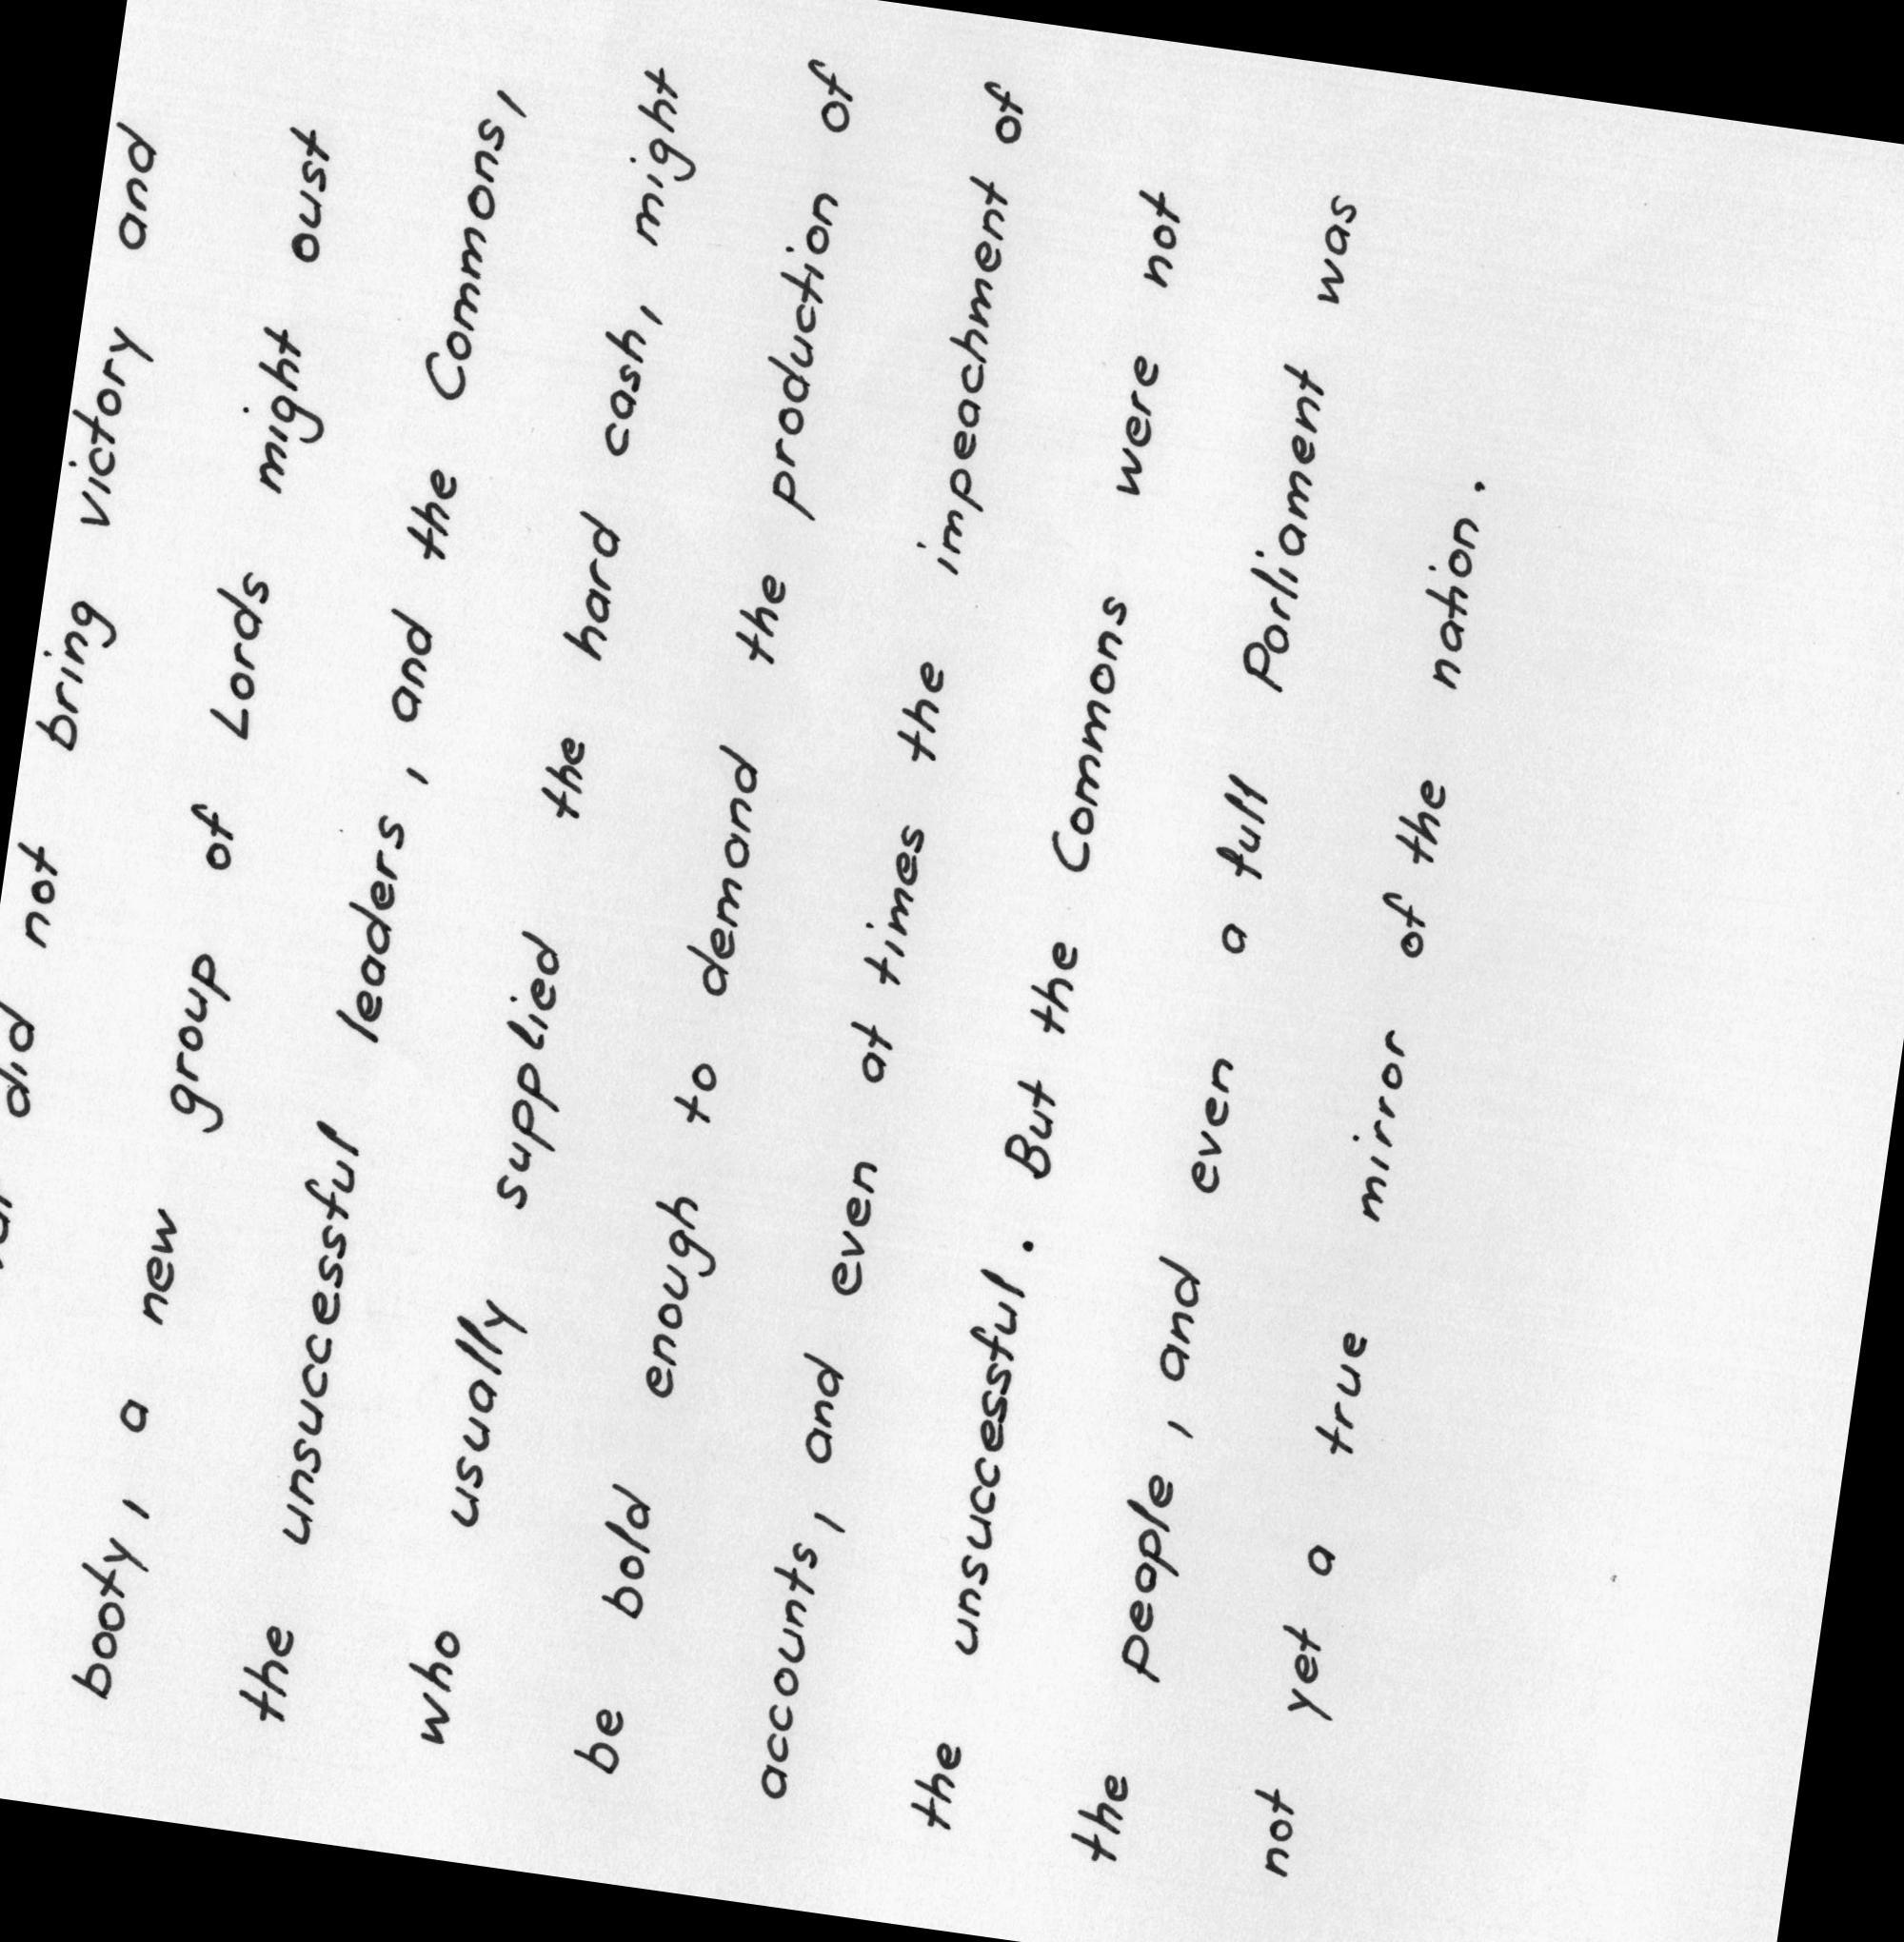 did not bring victory and
booty, a new group of Lords might oust
the unsuccessful leaders, and the Commons,
who usually supplied the hard cash, might
be bold enough to demand the production of
accounts, and even at times the impeachment of
the unsuccessful. But the Commons were not
the people, and even a full Parliament was
not yet a true mirror of the nation.